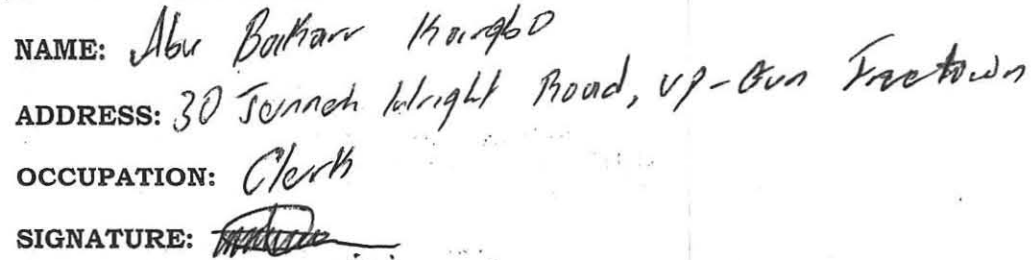 NAME: Abu Bakarr Kargbo
ADDRESS: 30 Jenneh Wright Road, up-Gun Freetown
OCCUPATION: Clerk
SIGNATURE: